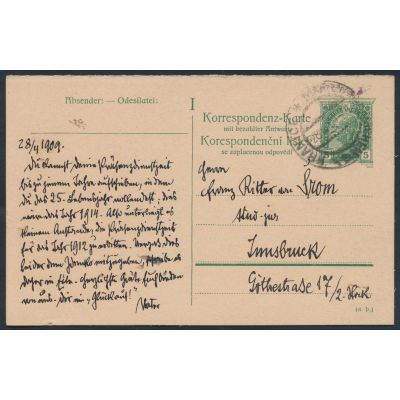 Absender: — Odesilatel:
I
Korrespondenz-Karte
mit bezahlter Antwort
Korespondenční
se zaplacenou odpovědí
5
28/4 1909.
Du kannst deine Präsenzdienstzeit
bis zu jenem Jahre aufschieben, in dem
du das 25. Lebensjahr vollendest, das
wäre das Jahr 1914. Also unterliegt es
keinem Anstande, die Präsenzdienstzeit
für das Jahr 1912 zu erbitten. Vergiß dies
bei der dem
daher in Eile. Herzlichste Grüße
von uns. Dir ein „Glückauf!"
Vater
Herrn
Franz Ritter von Srom
stud. jur.
Innsbruck
Göthestraße 17/2. Stock
(n. b.)